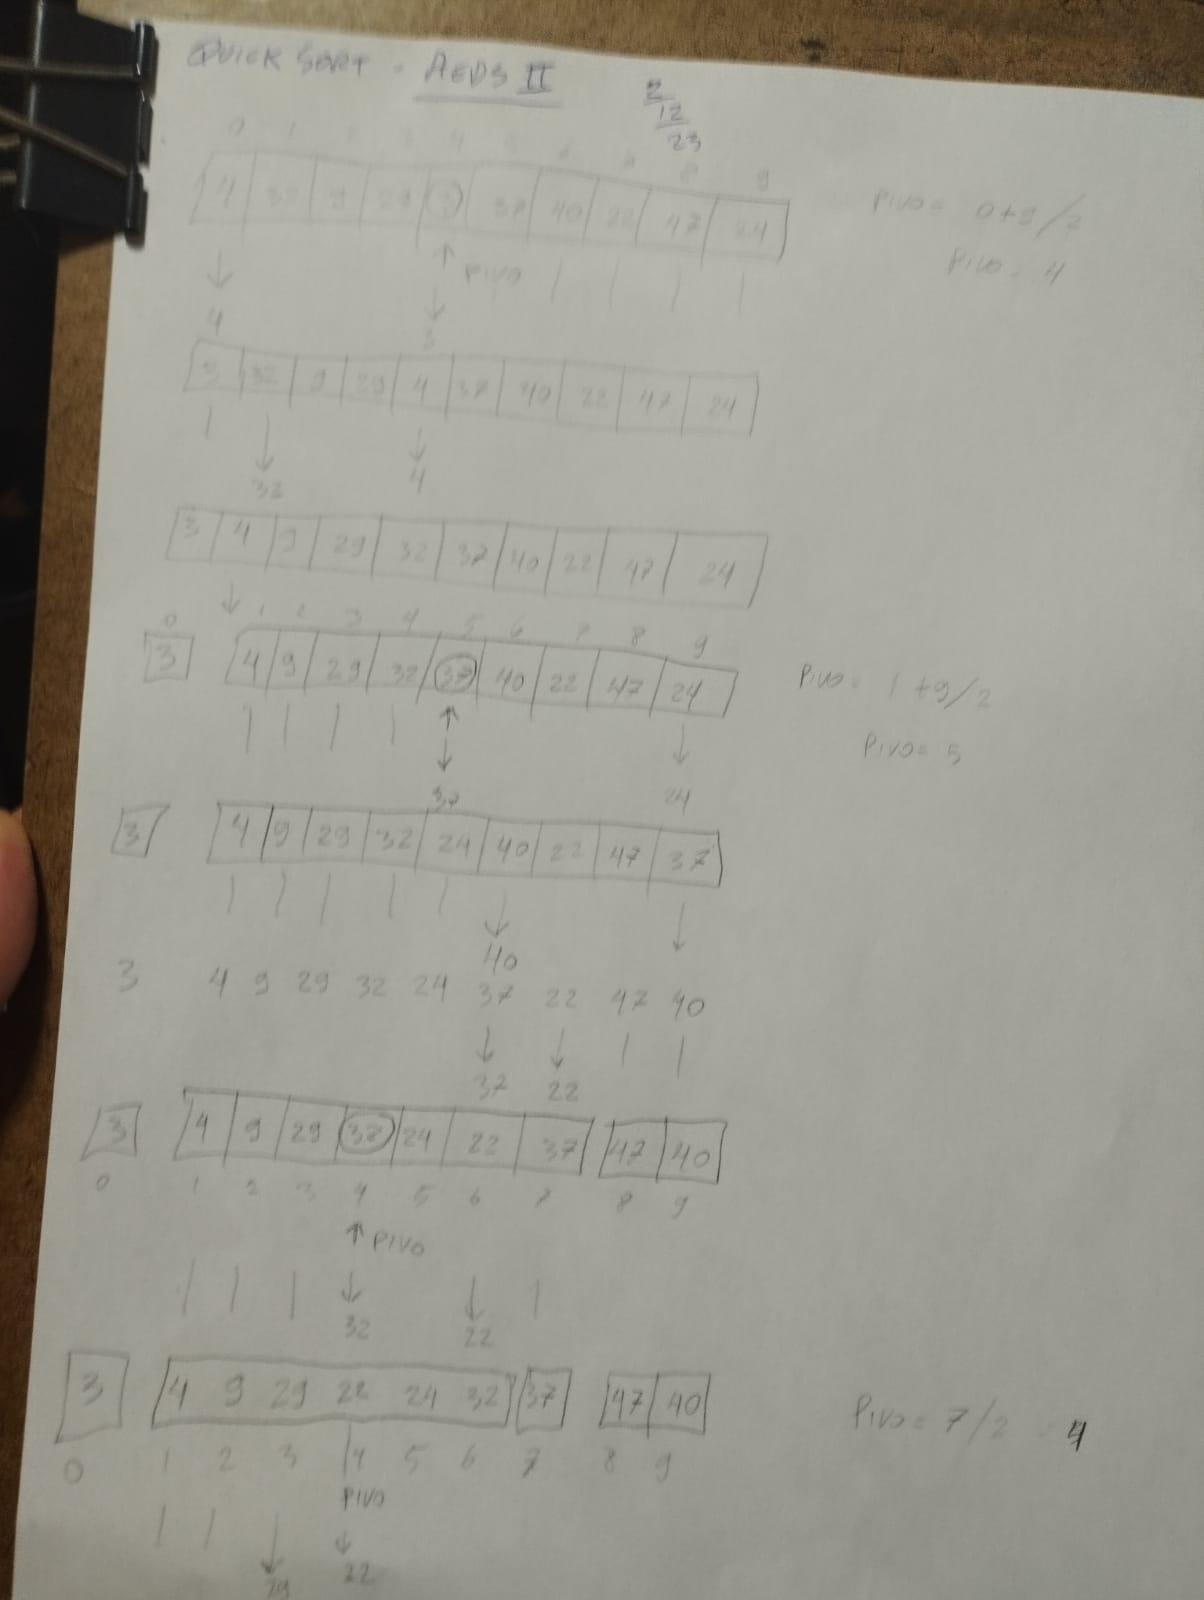 QUICK SORT - AEDS II 2/12/23
0 1 2 3 4 5 6 7 8 9
4 32 9 29 3 37 40 22 47 24 PIVO = 0+9/2
↑ PIVO PIVO = 4
4 3
3 32 9 29 4 37 40 22 47 24
32 4
3 4 9 29 32 37 40 22 47 24
0 1 2 3 4 5 6 7 8 9
3 4 9 29 32 37 40 22 47 24 PIVO = 1+9/2
PIVO = 5
37 24
3 4 9 29 32 24 40 22 47 37
40
3 4 9 29 32 24 37 22 47 40
37 22
3 4 9 29 32 24 22 37 47 40
0 1 2 3 4 5 6 7 8 9
↑ PIVO
32 22
3 4 9 29 22 24 32 37 47 40 PIVO = 7/2 4
0 1 2 3 4 5 6 7 8 9
PIVO
29 22